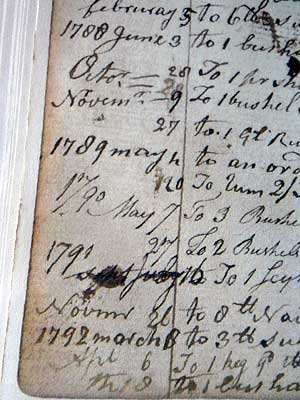 february 5 to 6 lb su
1788 June 3 to 1 bushe
Octor 28 To 1 pr sh
Novemr 9 To 1 bushel
27 to 1 qt Ru
1789 may 4 to an ord
20 To Rum 2/
1790 May 7 To 3 Bushe
27 To 2 Bushels
1791 12 To 1 Scy
Novemr 26 to 8 lb Nai
1792 march 8 to 3 lb su
Apl 6 To 1 heg
8 to 1 busha